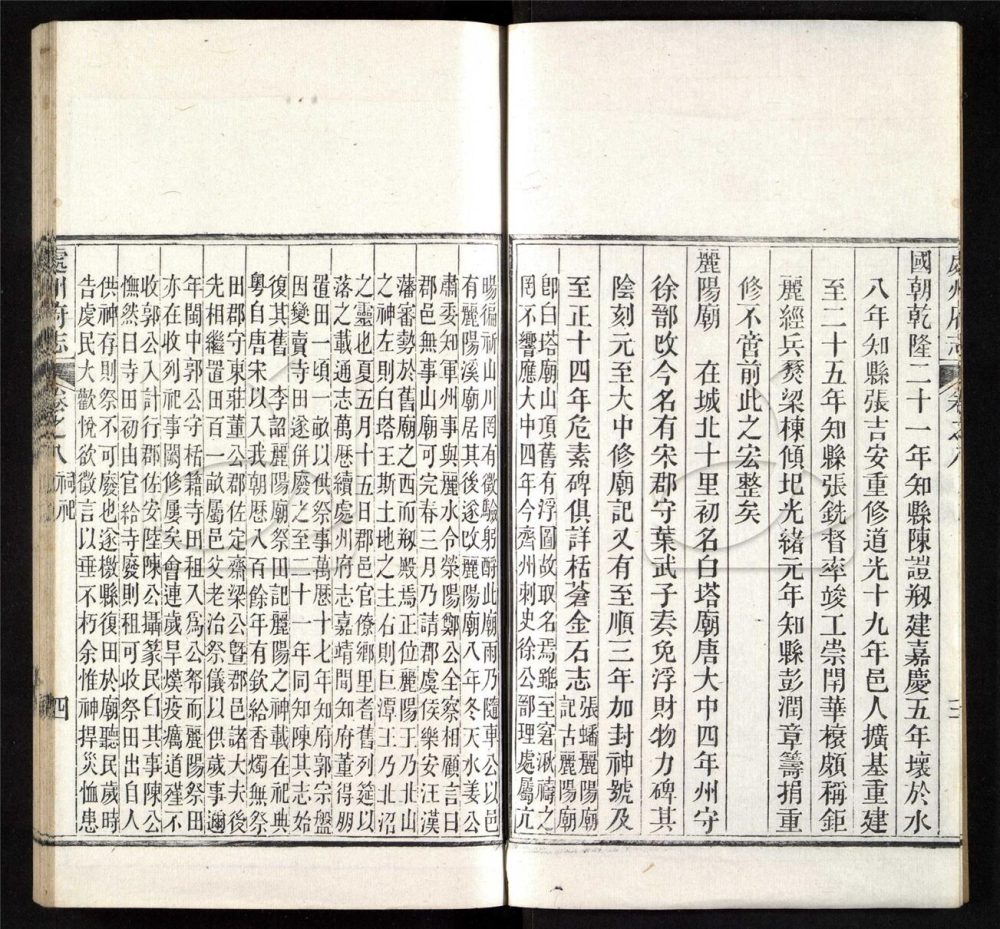 處州府志 卷之八 三
國朝乾隆二十一年知縣陳證剏建嘉慶五年壞於水
八年知縣張吉安重修道光十九年邑人擴基重建
至二十五年知縣張銑督率竣工崇閈華榱頗稱鉅
麗經兵燹梁棟傾圯光緒元年知縣彭潤章籌捐重
修不啻前此之宏整矣
麗陽廟 在城北十里初名白塔廟唐大中四年州守
徐䣝改今名有宋郡守葉武子奏免浮財物力碑其
陰刻元至大中修廟記又有至順三年加封神號及
至正十四年危素碑俱詳栝蒼金石志 張蟠麗陽廟
記古麗陽廟
卽白塔廟山頂舊有浮圖故取名焉雖至窘湫禱之
罔不響應大中四年今齊州刺史徐公䣝理處屬亢
暘徧祈山川罔有徵驗躬酹此廟雨乃隨車公以邑
有麗陽溪廟居其後遂改麗陽廟八年冬天水姜公
肅委知軍州事與麗水令滎陽鄭公全察相顧言曰
郡邑無事山廟可完春三月乃請郡虞侯樂安汪漢
藩審勢於舊廟之西而剏殿焉正位麗陽王乃北山
之神左則白塔王斯土地之主右則巨潭王乃北沼
之靈也夏五月十五日郡官僚鄉里耆舊列筵以
落之載通志萬歷續處州府志嘉靖間知府董得剙
置田一頃一畝以供祭事萬歷十七年知府郭宗盤
因變賣寺田遂併廢之至三十一年同知陳其志始
復其舊 李詔麗陽廟祭田記麗陽之神載在祀典
粵自唐宋以入我朝歷八百餘年有欽給香燭無祭
田郡守東莊董公郡佐定齋梁公暨郡邑諸大夫後
先相繼置田百一畝屬邑父老治祭儀以供歲事邇
年閩中郭公守栝籍寺田租入爲公帑而麗陽祭田
亦在收列祀事闕修屢矣會連歲旱熯疫癘道殣不
收郭公入計行郡佐安陸陳公攝篆民臼其事陳公
憮然曰寺田初由官給寺廢則租可收祭田出自人
供神存則祭不可廢也遂檄縣復田於廟聽民歲時
告虔民大歡悅欲徵言以垂不朽余惟神捍災恤患
處州府志 卷之八 祠祀 四